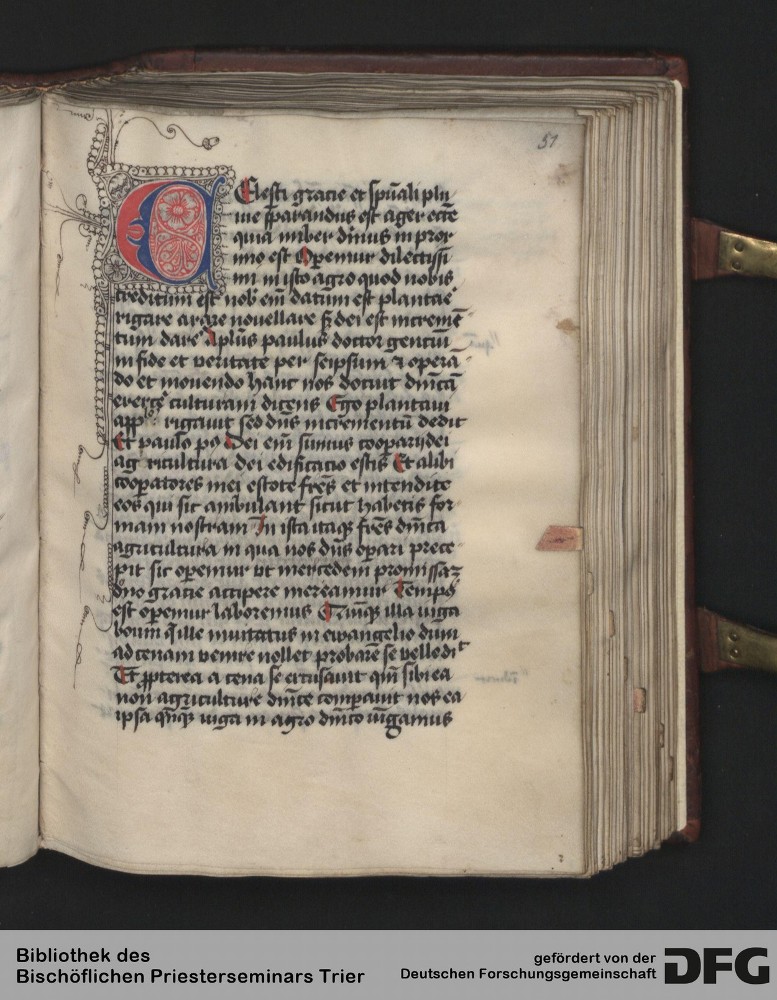 51
Celesti gracie et sp̄uali plu
uie p̄parandus est ager ecc̄e
quia imber diuinus in prox
imo est Operemur dilectissi
mi in isto agro quod nobis
creditum est nob em̄ datum est plantare
rigare arare nouellare s̄ dei est increm̄e
tum dare Apl̄us paulus doctor gentiū
in fide et veritate per seipsum ⁊ operā
do et mouendo hanc nos docuit dn̄icā
culturam dicens Ego plantaui
rigauit sed dn̄s incrementū dedit
Et paulo po Dei em̄ sumus
ag ricultura dei edificatio estis Et alibi
cooperatores mei estote fr̄es et intendite
eos qui sic ambulant sicut habetis for
mam nostram In ista itaqꝫ fr̄es dn̄ica
agricultura in qua nos dn̄s op̄ari prece
pit sic operemur vt mercedem promissaꝫ
dn̄o gracie accipere mereamur Temp9
est operemur laboremus illa iuga
boum q̄ ille inuitatus in ewangelio dum
ad cenam venire nollet probare se velle dix̄t
Et ꝓpterea a cena se excusauit qm̄ sibi ea
non agriculture dn̄ice comparauit nos ea
ipsa iuga in agro dn̄ico iūgamus
Bibliothek des
Bischöflichen Priesterseminars Trier
gefördert von der
Deutschen Forschungsgemeinschaft
DFG